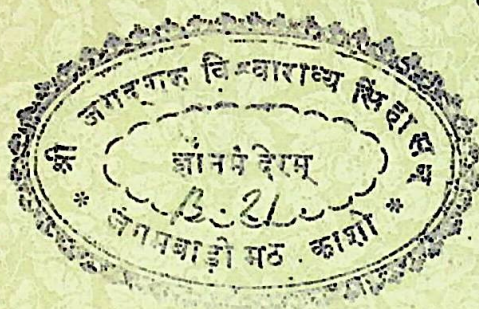 श्री जगद्गुरु विश्वाराध्य सिंहासन
ज्ञानमंदिरम्
B-21
* जंगमवाड़ी मठ काशी *